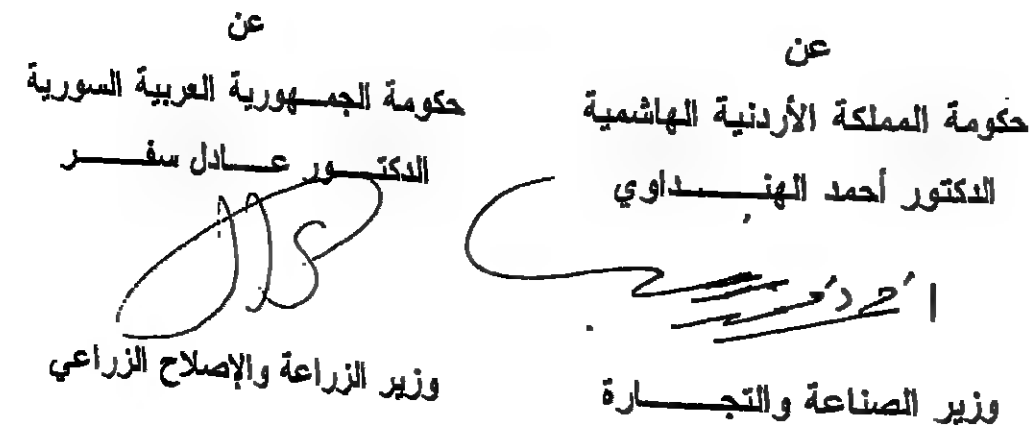 عن
حكومة المملكة الأردنية الهاشمية
الدكتور أحمد الهنــــداوي
وزير الصناعة والتجـــــارة
عن
حكومة الجمــهورية العربية السورية
الدكتــور عــادل سفــــر
وزير الزراعة والإصلاح الزراعي